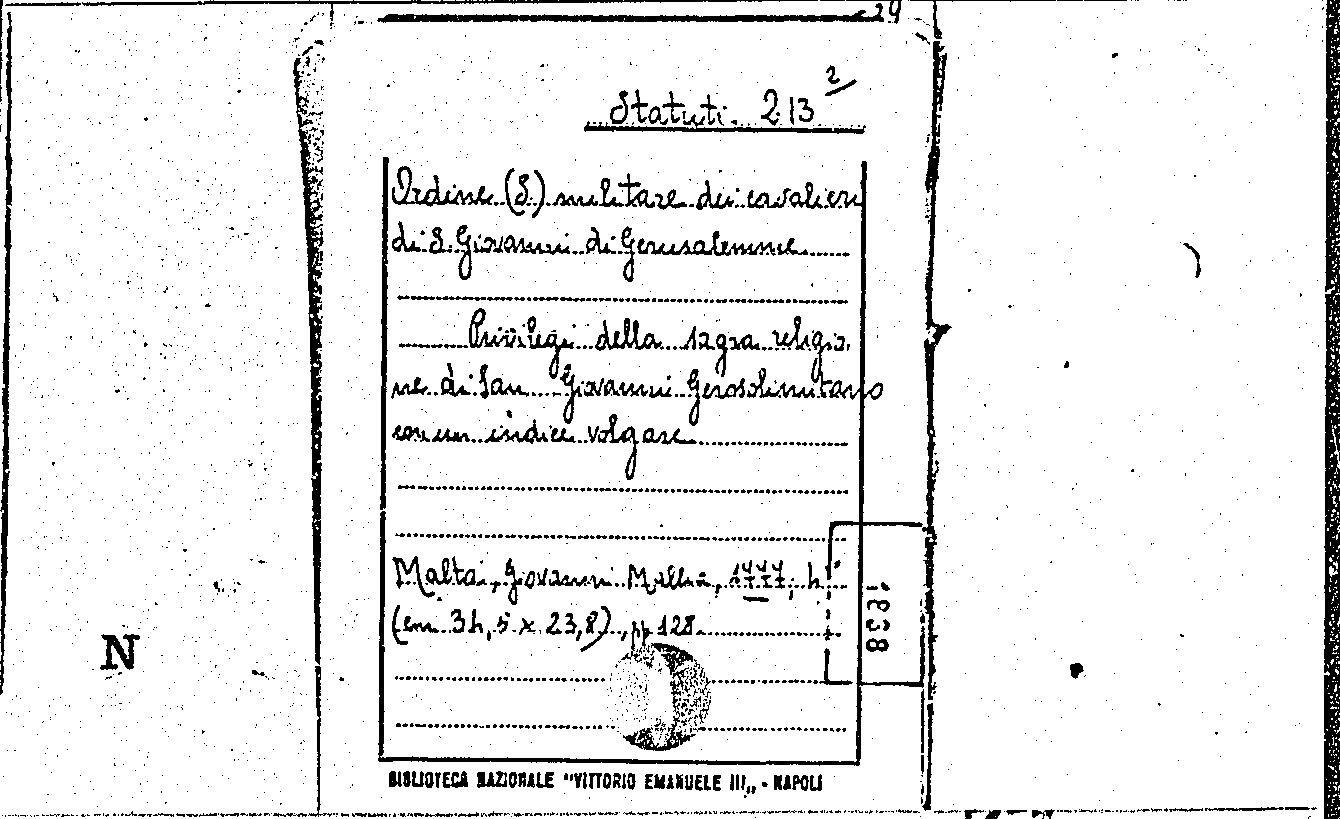 29
Statuti. 213 2
Ordine (S.) militare dei cavalieri
di S. Giovanni di Gerusalemme
Privilegi della sagra religio-
ne di San Giovanni Gerosolimitano
con un indice volgare
Malta, Giovanni Mallia, 1777, 4°
(cm. 34,5 x 23,8), pp 128
1838
N
BIBLIOTECA NAZIONALE "VITTORIO EMANUELE III„ - NAPOLI